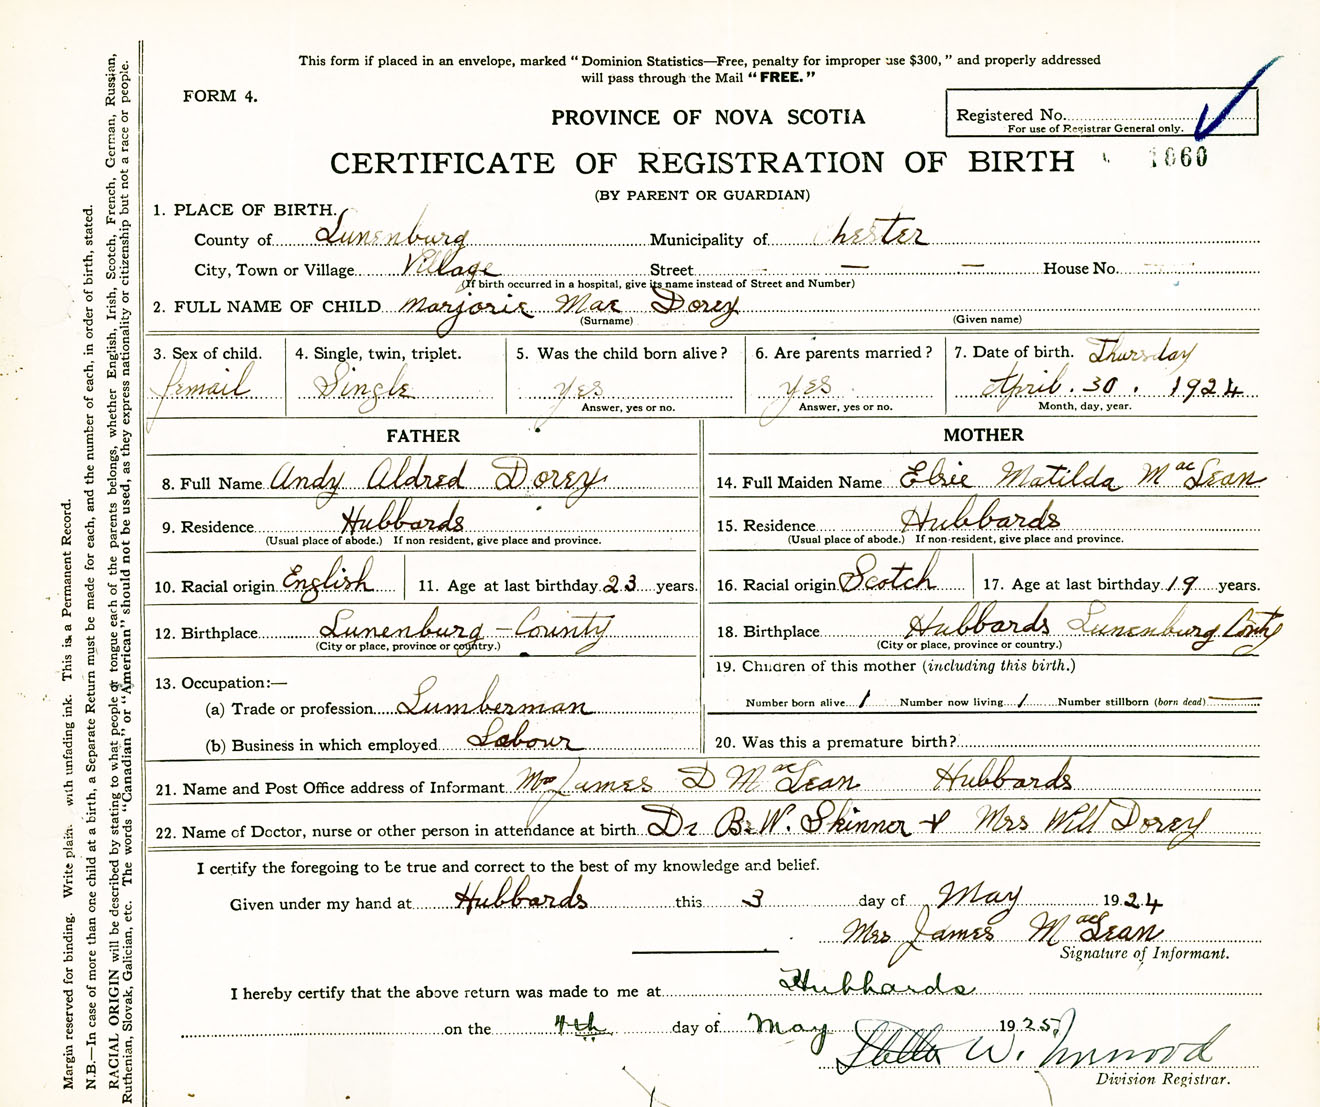 This form if placed in an envelope, marked "Dominion Statistics—Free, penalty for improper use $300," and properly addressed
will pass through the Mail "FREE."
FORM 4.
PROVINCE OF NOVA SCOTIA
Registered No.
For use of Registrar General only.
CERTIFICATE OF REGISTRATION OF BIRTH
1060
(BY PARENT OR GUARDIAN)
1. PLACE OF BIRTH.
County of Lunenburg Municipality of Chester
City, Town or Village Village Street — — — House No.
(If birth occurred in a hospital, give its name instead of Street and Number)
2. FULL NAME OF CHILD Marjorie Mae Dorey
(Surname) (Given name)
3. Sex of child. 4. Single, twin, triplet. 5. Was the child born alive? 6. Are parents married? 7. Date of birth. Thursday
femail Single yes yes April. 30. 1924
Answer, yes or no. Answer, yes or no. Month, day, year.
FATHER MOTHER
8. Full Name Andy Aldred Dorey 14. Full Maiden Name Elsie Matilda MacLean
9. Residence Hubbards 15. Residence Hubbards
(Usual place of abode.) If non resident, give place and province. (Usual place of abode.) If non-resident, give place and province.
10. Racial origin English 11. Age at last birthday 23 years. 16. Racial origin Scotch 17. Age at last birthday 19 years.
12. Birthplace Lunenburg - County 18. Birthplace Hubbards Lunenburg County
(City or place, province or country.) (City or place, province or country.)
13. Occupation:— 19. Children of this mother (including this birth.)
(a) Trade or profession Lumberman Number born alive 1 Number now living 1 Number stillborn (born dead) —
(b) Business in which employed Labour 20. Was this a premature birth?
21. Name and Post Office address of Informant Mrs James D MacLean Hubbards
22. Name of Doctor, nurse or other person in attendance at birth Dr B. W. Skinner + Mrs Will Dorey
I certify the foregoing to be true and correct to the best of my knowledge and belief.
Given under my hand at Hubbards this 3 day of May 1924
Mrs James MacLean
Signature of Informant.
I hereby certify that the above return was made to me at Hubbards
on the 4th day of May 1925
W.
Division Registrar.
Margin reserved for binding. Write plain with unfading ink. This is a Permanent Record.
N.B.—In case of more than one child at a birth, a Separate Return must be made for each, and the number of each, in order of birth, stated.
RACIAL ORIGIN will be described by stating to what people or tongue each of the parents belongs, whether English, Irish, Scotch, French, German, Russian,
Ruthenian, Slovak, Galician, etc. The words "Canadian" or "American" should not be used, as they express nationality or citizenship but not a race or people.